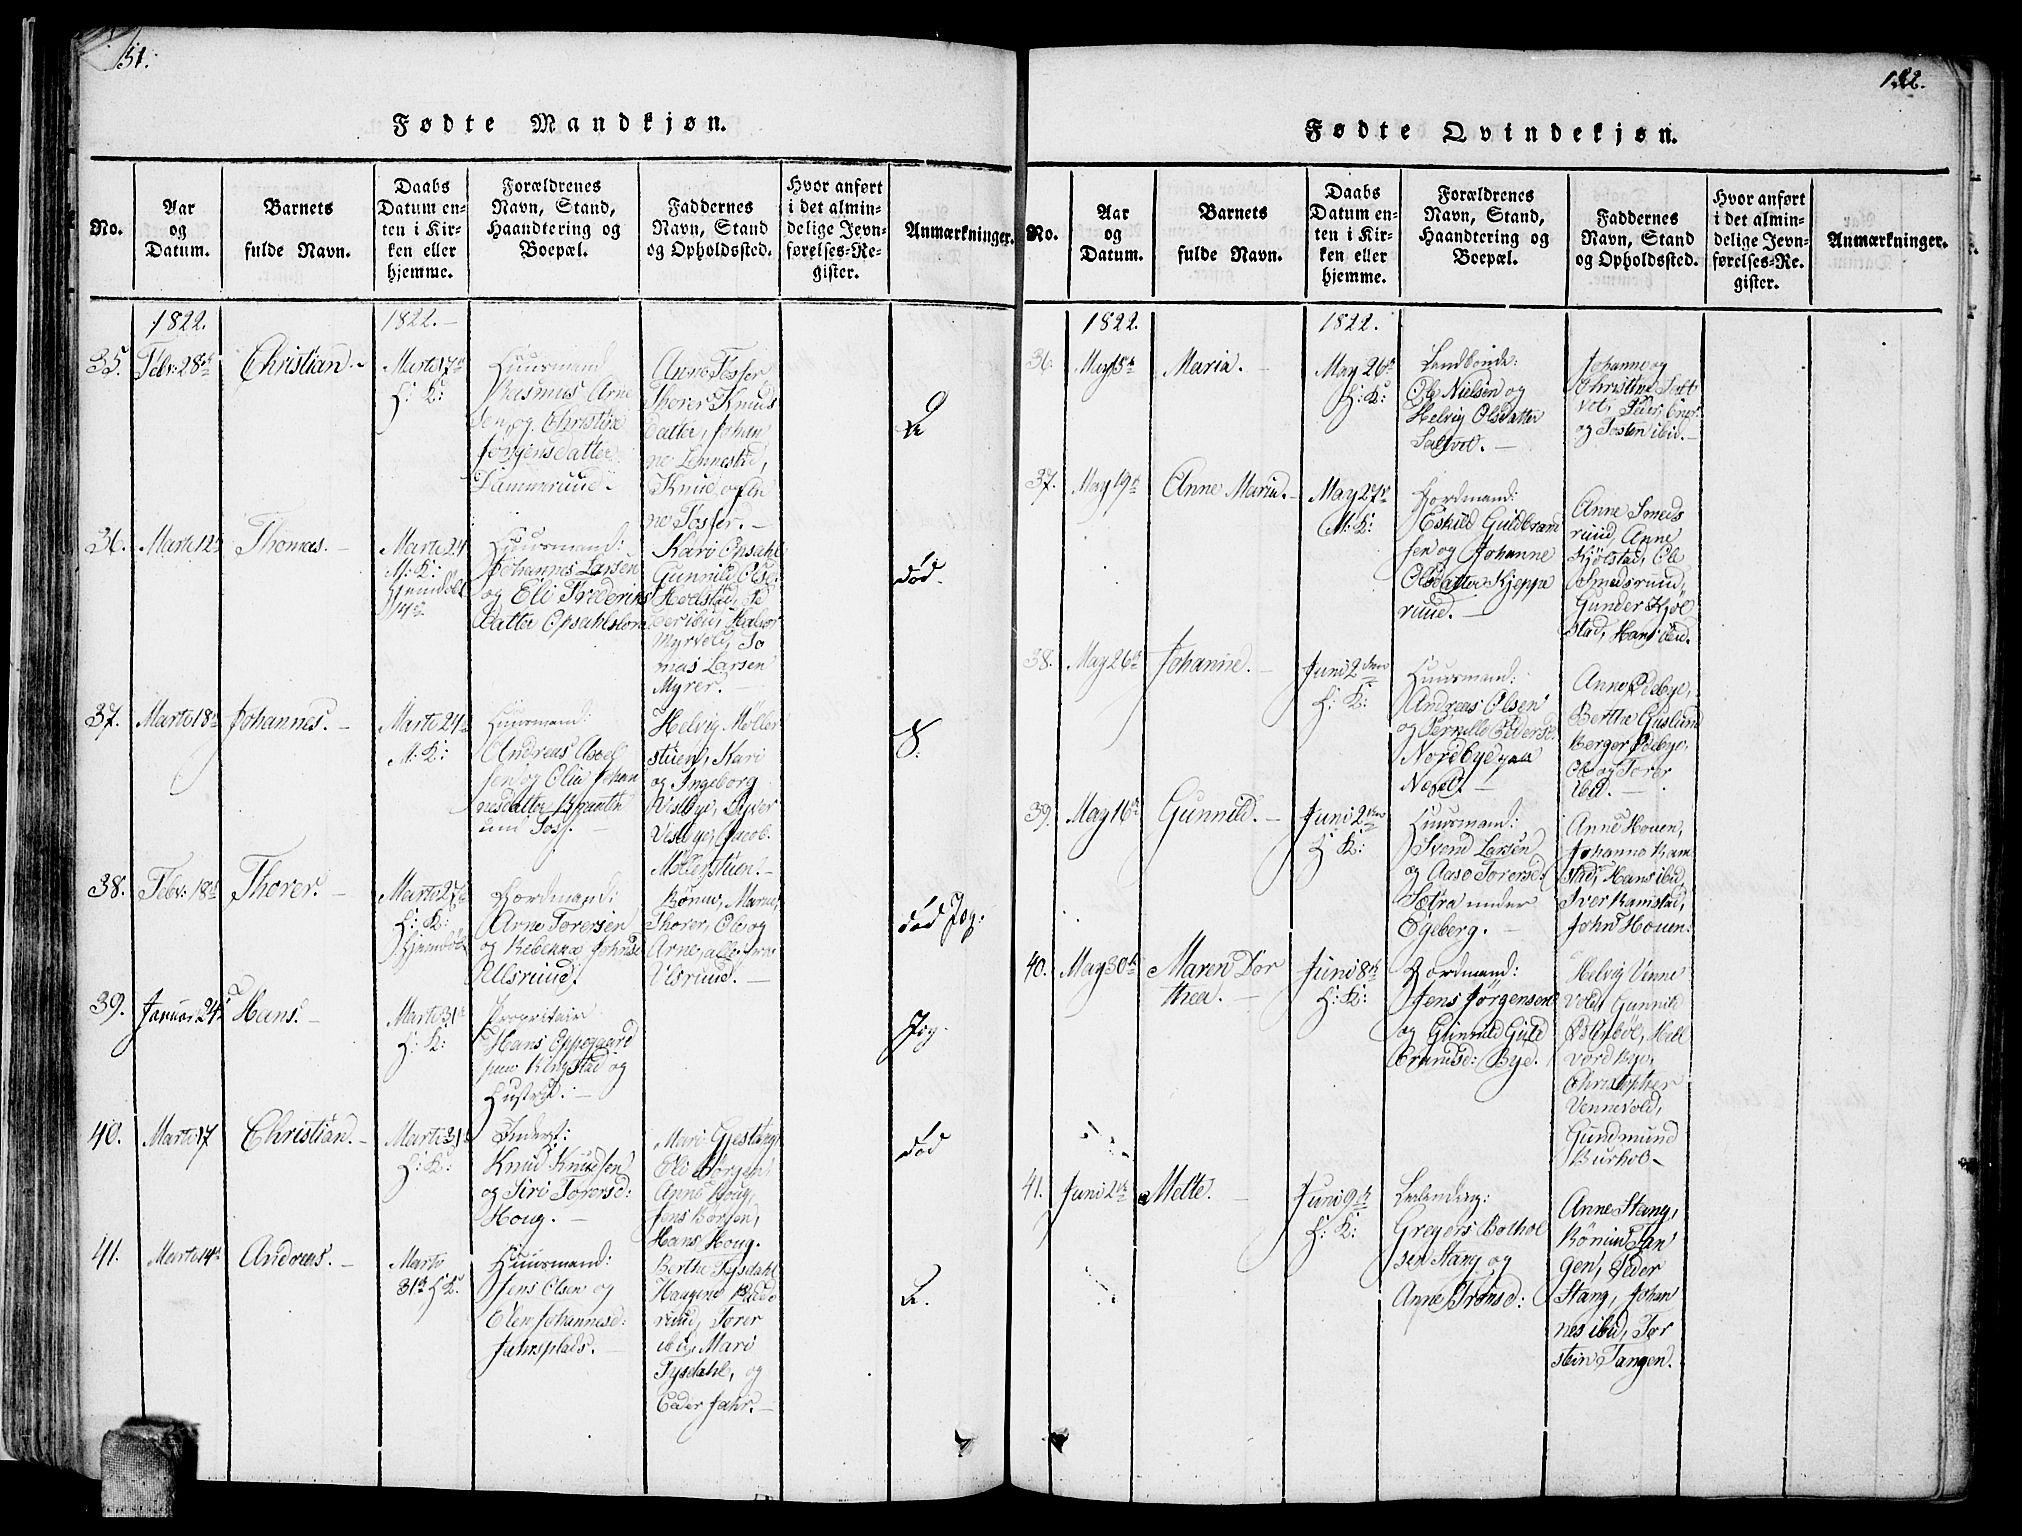 131.
Fødte Mandkjøn.
No.
Aar
og
Datum.
Barnets
fulde Navn.
Daabs
Datum en-
ten i Kir-
ken eller
hjemme.
Forældrenes
Navn, Stand,
Haandtering og
Boepæl.
Faddernes
Navn, Stand
og Opholdssted.
Hvor anført
i det almin-
delige Jevn-
førelses-Re-
gister.
Anmærkninger.
1822.
1822.
35.
Febr: 28de
Christian.
Marts 17de
H: K:
Huusmand
Rasmus Arne
sen, og Christine
Jørgensdatter
Anne Fosser
Thorer Knuds
datter, Johan
ne Lennestad,
Knud, og An
ne Fosser.
36.
Marts 12te
Thomas.
Marts 24
M: K:
Hjemdøbt
14de
Huusmand:
Johannes Larsen
og Eli Frederiks
datter Opsahlstorp
Kari Opsahl
Gunnild Olsd:
Holstad,
Halvor
Myrvold, To
mas Larsen
Myrer.
død.
37.
Marts 18de
Johannes.
Marts 24de
M: K:
Huusmand:
Andreas Axel
sen og Olia Johan
nesdatter
Foss.
Helvig Møller
stuen, Kari
og Ingeborg
Visbye, Syver
Visbye, Jacob
Møllerstuen.
S.
38.
Febr: 18de
Thorer.
Marts 27de
H: K:
Hjemdøbt
Gordmand:
Arne Torersen
og Rebekka Johnsd:
Ullsrund.
Rønnu, Marne,
Thorer, Ole og
Arne, alle fra
Ulsrund.
død Jog:
39.
Januar 24de
Hans.
Marts 31te
H: K:
Proprietair
Hans Oppegaard
paa Ringstad og
Hustrue:
Jog.
40.
Marts 17
Christian.
Marts 31te
H: K:
Inderst:
Knud Knudsen
og Siri Torersd:
Houg.
Mari Gjestang,
Eli Børgen,
Anne Houg,
Jens Børgen,
Hans Houg.
død
41.
Marts 14de
Andreas.
Marts
31te H: K:
Huusmand:
Jens Olsen og
Elen Johannesd:
Jahrsplads.
Berthe Tysdahl
Haagene
rund, Torer
ibid, Mari
Tysdahl, og
Peder Jahr.
122.
Fødte Qvindekjøn.
No.
Aar
og
Datum.
Barnets
fulde Navn.
Daabs
Datum en-
ten i Kir-
ken eller
hjemme.
Forældrenes
Navn, Stand,
Haandtering og
Boepæl.
Faddernes
Navn, Stand
og Opholdssted.
Hvor anført
i det almin-
delige Jevn-
førelses-Re-
gister.
Anmærkninger.
1822.
1822.
36.
May 5te
Maria.
May 26de
H: K:
Landbonde:
Ole Nielsen og
Helvig Olsdatter
Saltvet.
Johanne og
Christine Salt
vet, Peder,
og Josten ibid.
37.
May 19de
Anne Maria.
May 27de
M: K:
Gordmand:
Eskild Guldbrand
sen og Johanne
Olsdatter Kjeppe
rund.
Anne Smeds
rund, Anne
Kjølstad, Ole
Smedsrund,
Gunder Kjøl
stad, Hans ibid.
38.
May 26de
Johanne.
Juni 2den
H: K:
Huusmand:
Andreas Olsen
og Pernille Pedersd:
Nordbye paa
Neset.
Anne Odebye,
Berthe Guslund
Berger Odebye,
Ole og Torer
ibid.
39.
May 16de
Gunnild.
Juni 2den
H: K:
Huusmand:
Svend Larsen
og Aase Torersd:
Sætra under
Egeberg.
Anne Houen,
Johanne Ram
stad, Hans ibid,
Iver Ramstad,
John Houen.
40.
May 30te
Maren Dor
thea.
Juni 8de
H: K:
Gordmand:
Jens Jørgensen
og Gunnild Guld
brandsd: Bye.
Helvig Venne
vold, Gunnild
Hell
vord Bye,
Christopher
Vennevold,
Gundmund
Burhol
41.
Juni 2de
Mette.
Juni 9de
H: K:
Greyers Bothol
sen Stang og
Anne Tronsd:
Anne Stang,
Rønnu Tan
gen, Peder
Stang, Johan
nes ibid, Tor
stein Tangen.